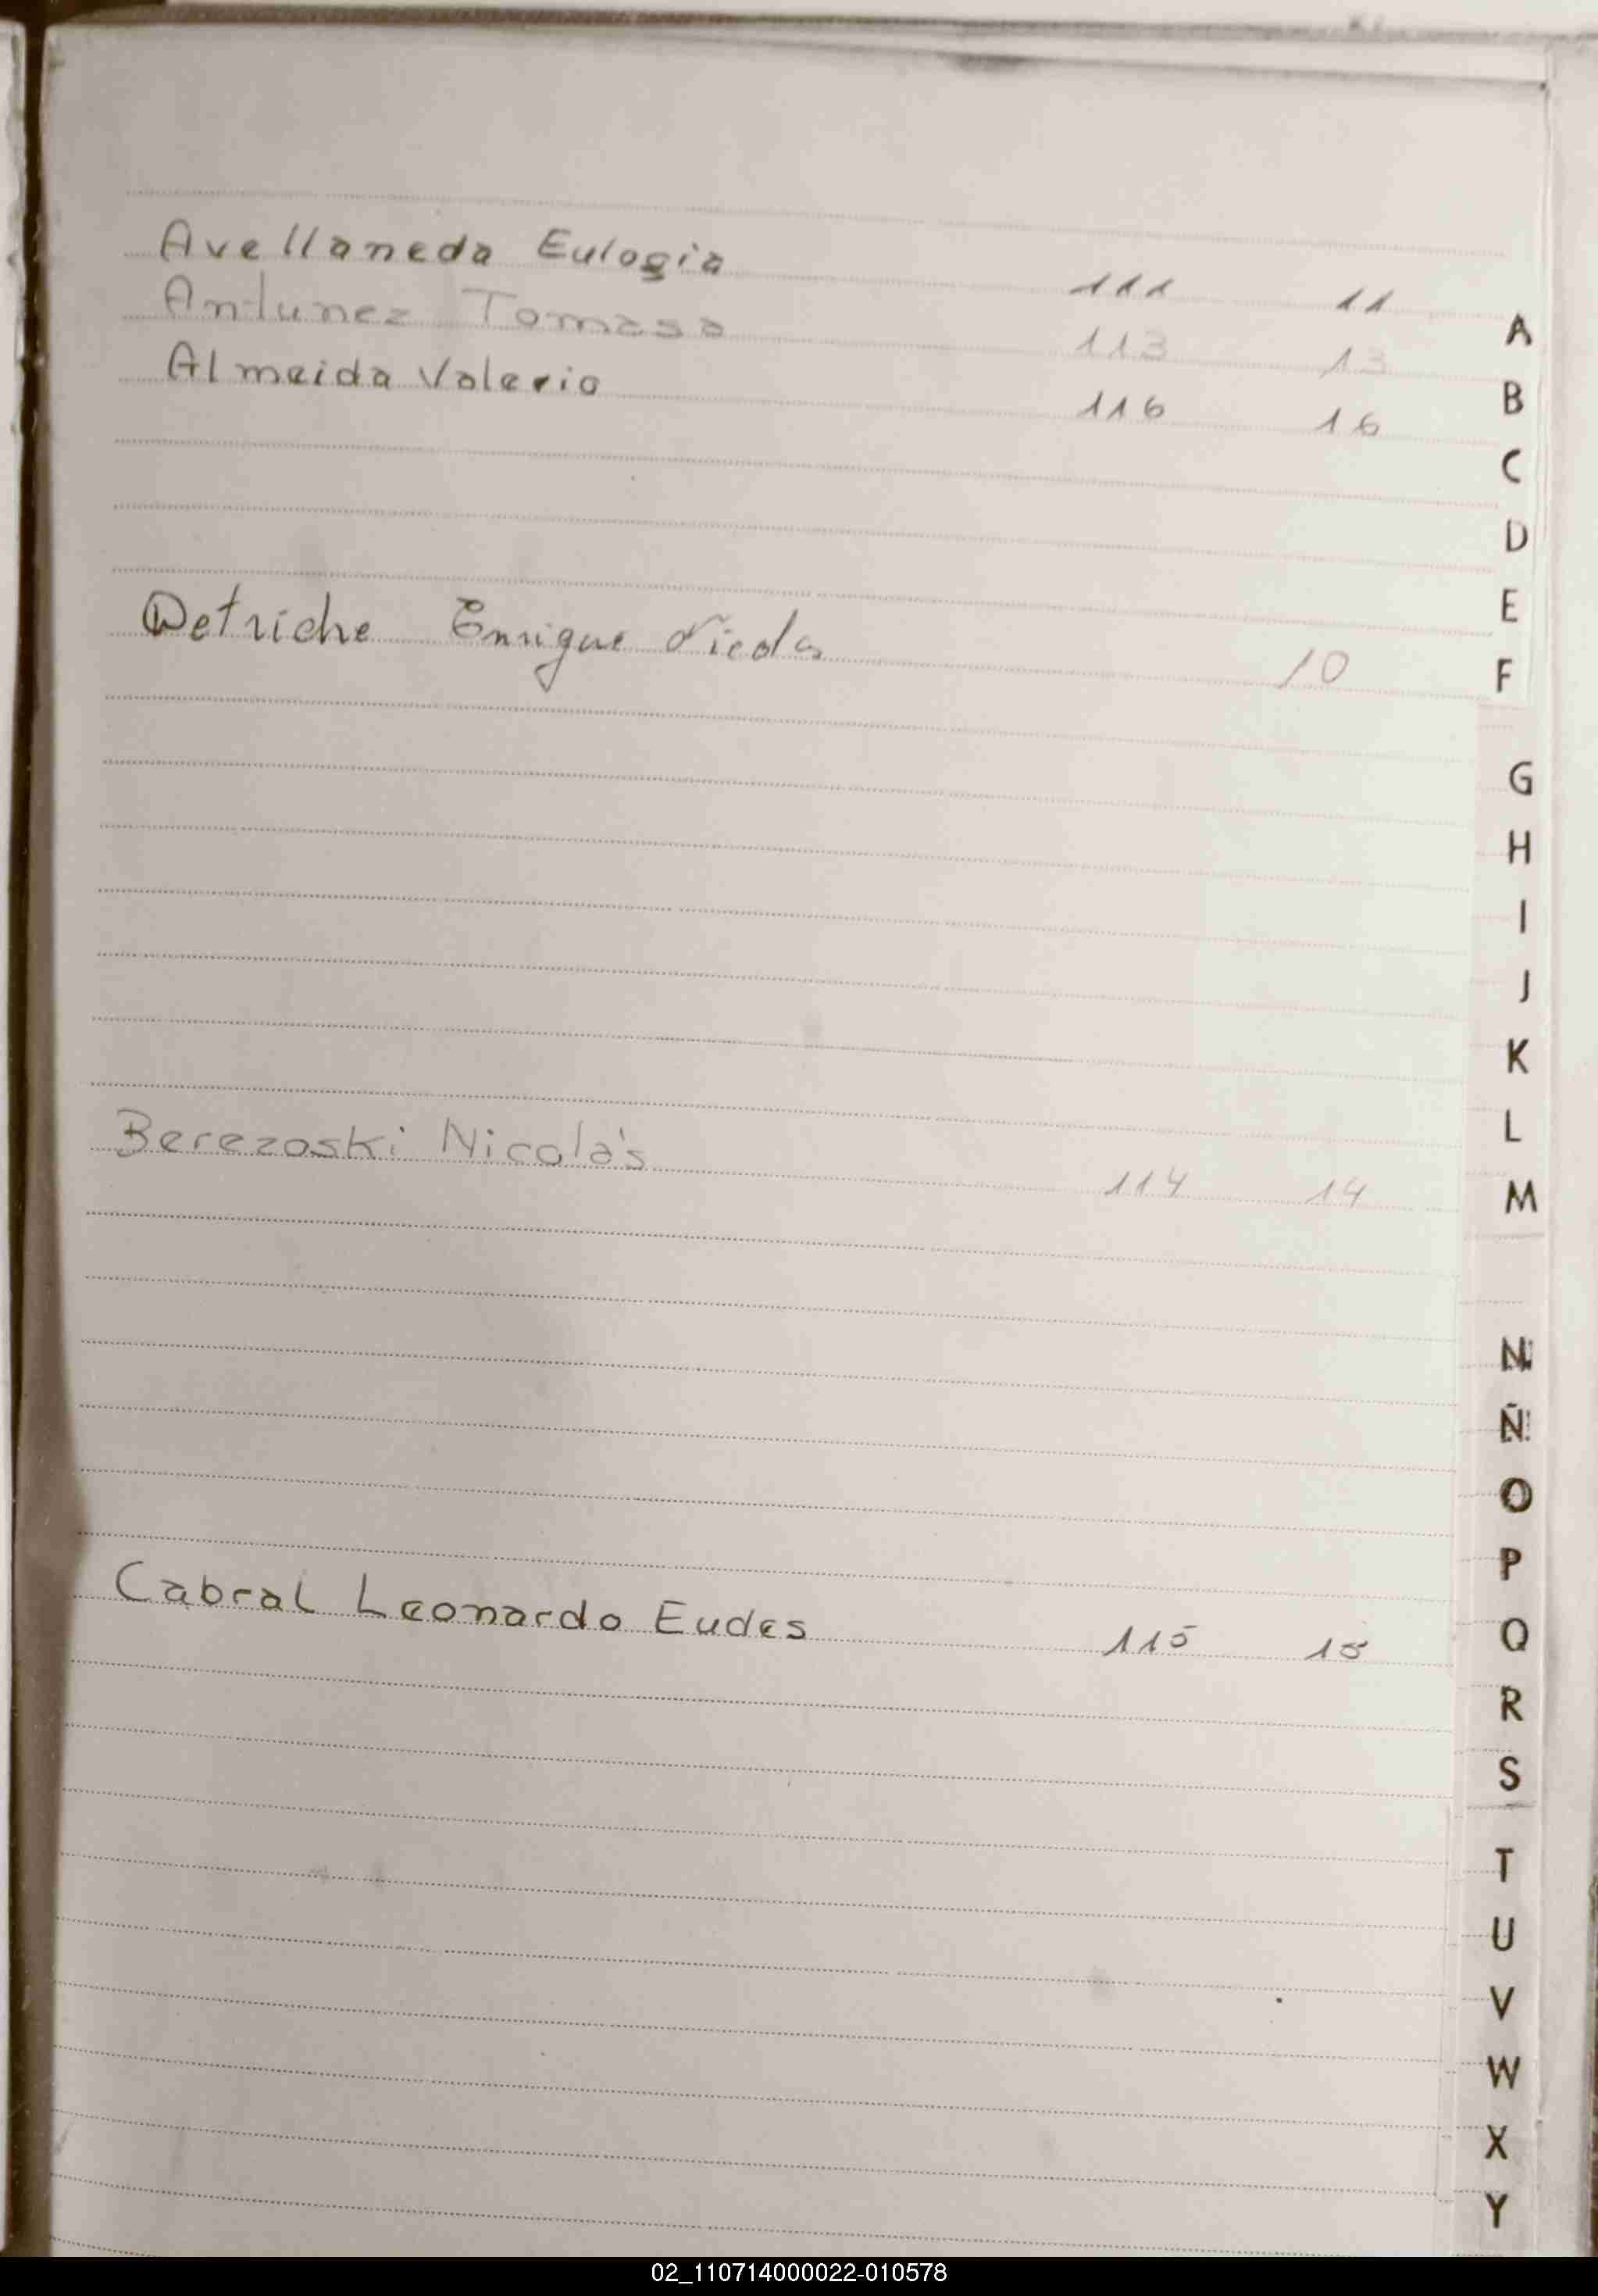 Avellaneda Eulogia 111 11
Antunez Tomasa 113 13
Almeida Valerio 116 16
Detriche Enrique Nicolas 10
Berezoski Nicolás 114 14
Cabral Leonardo Eudes 115 15
A
B
C
D
E
F
G
H
I
J
K
L
M
N
Ñ
O
P
Q
R
S
T
U
V
W
X
Y
02_110714000022-010578